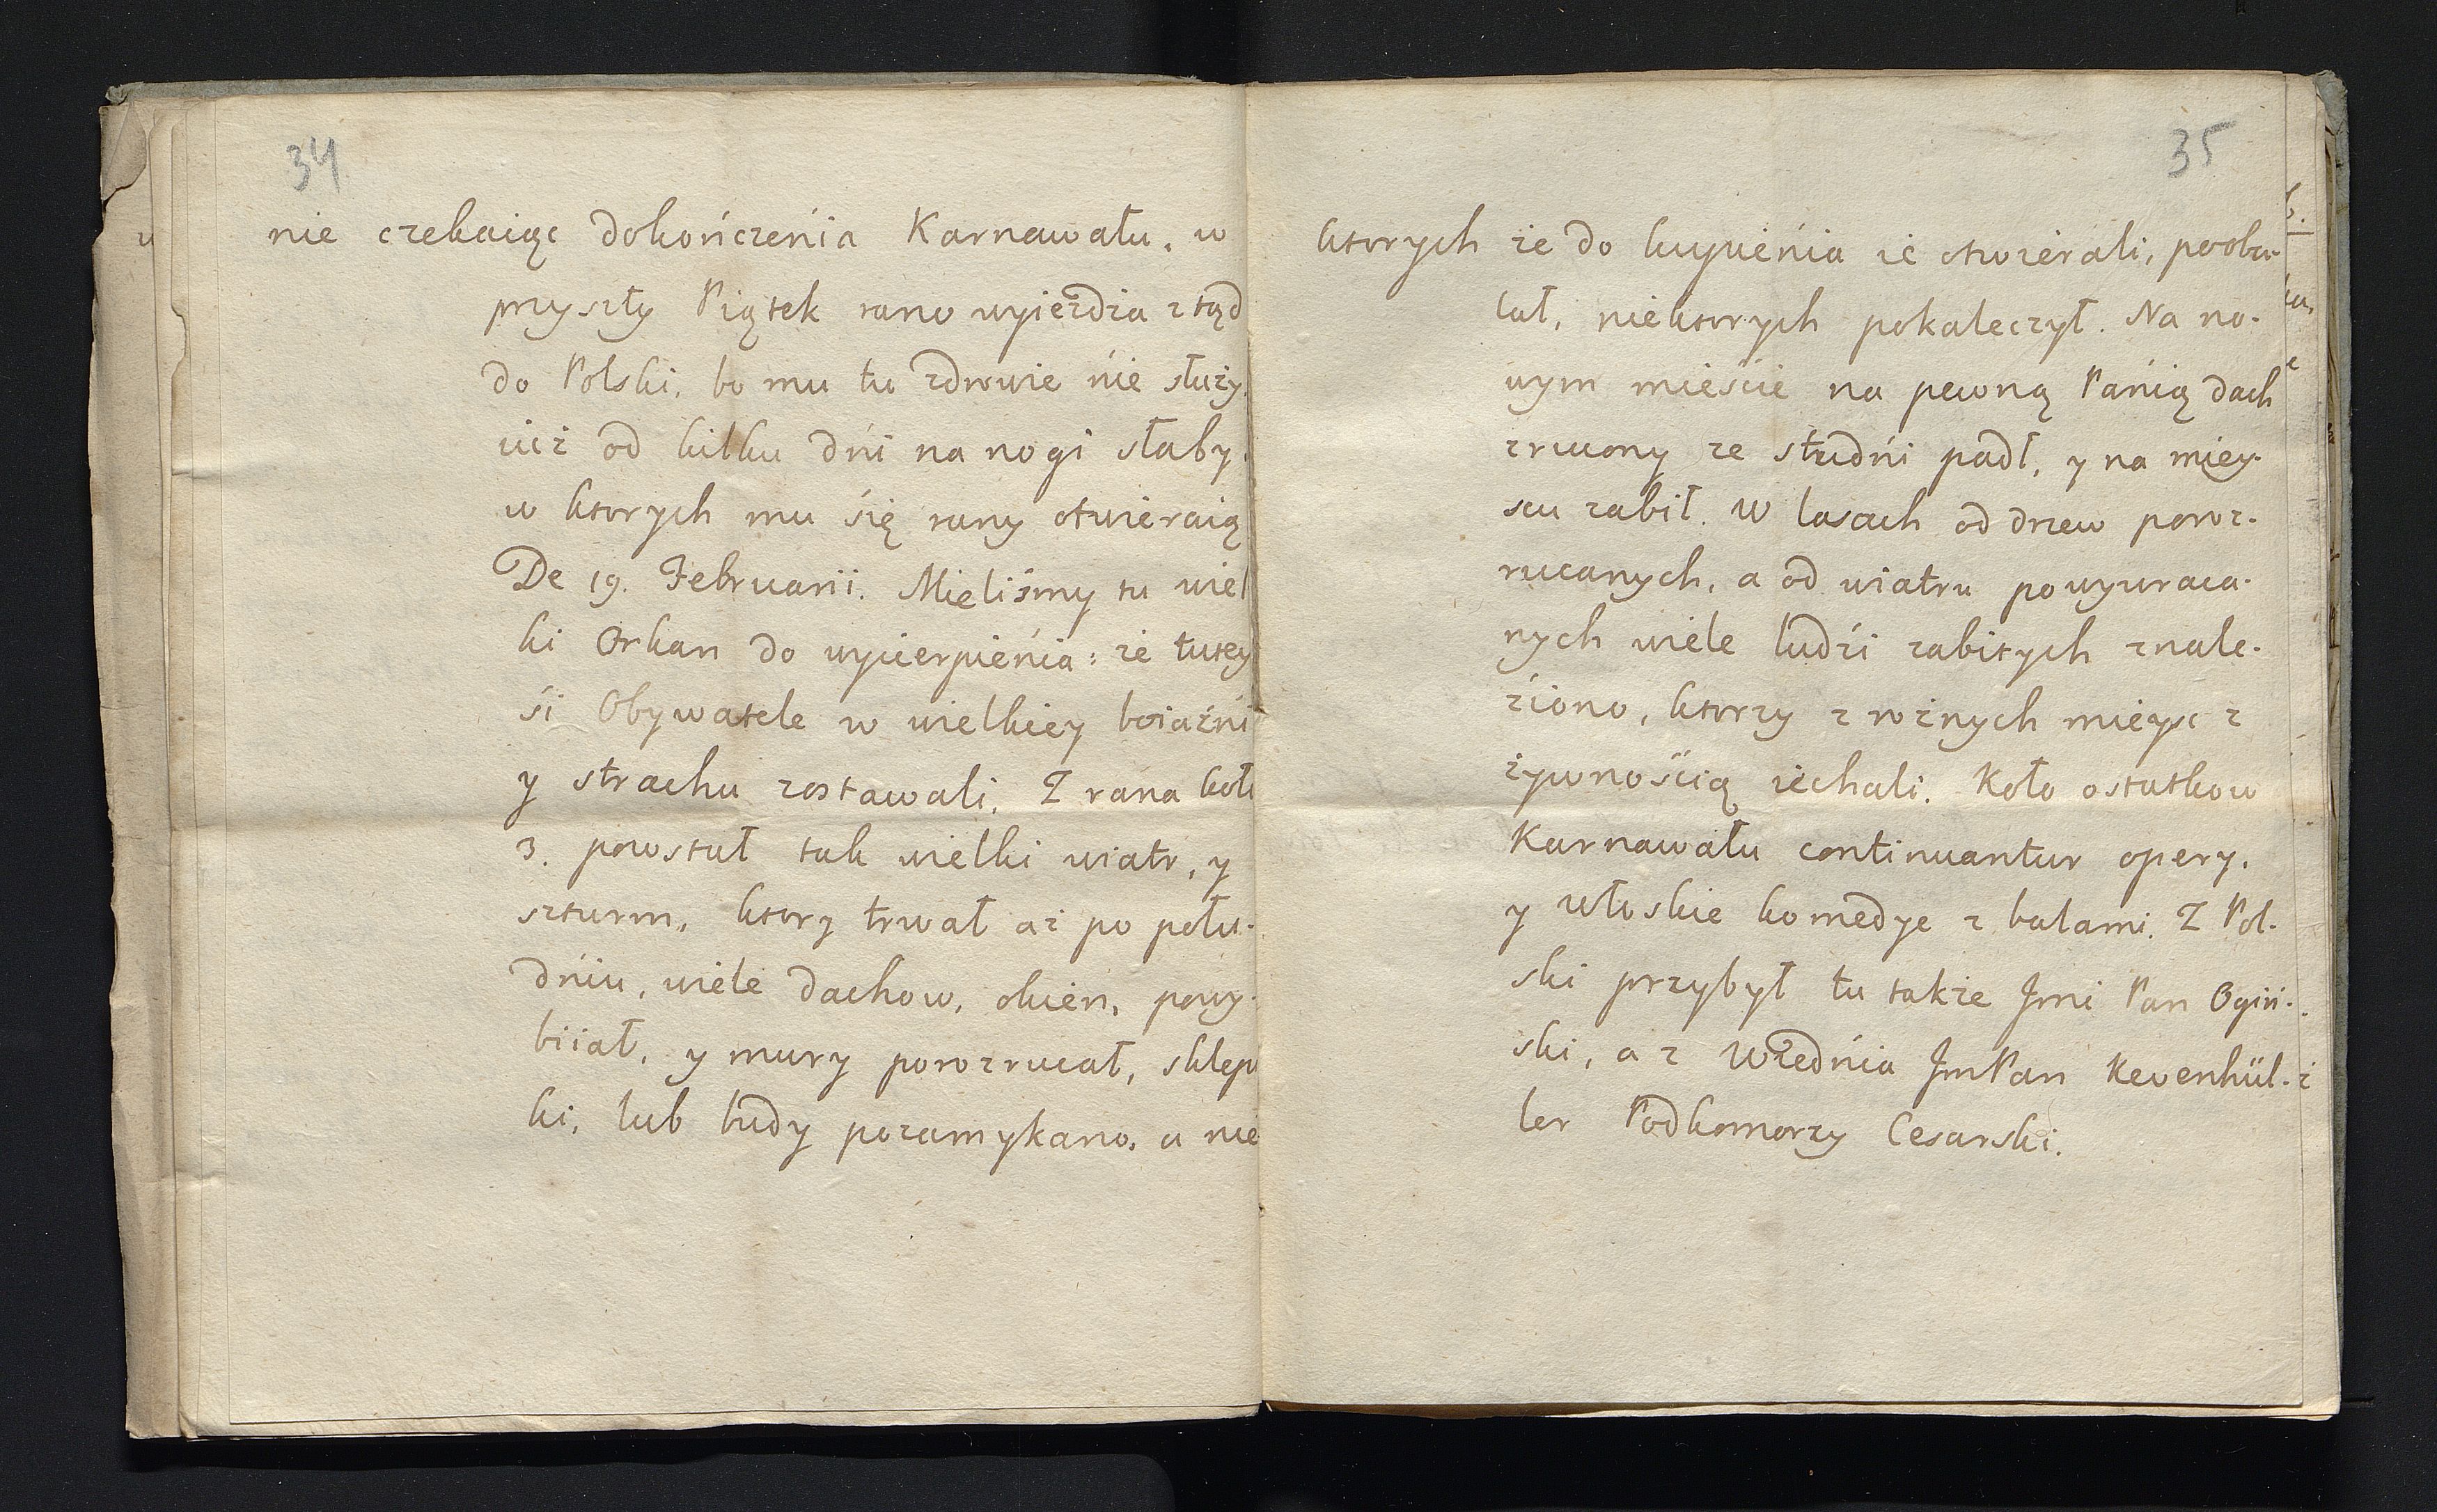 34
nie czekaiąc dokończeńia Karnawału, w
przyszły Piątek rano wyieżdża ztąd
do Polski, bo mu tu zdrowie nie służy
iuż od kilku dńi na nogi słaby,
w ktorych mu się rany otwieraią
De 19. Februarii. Mieliśmy tu wiel
ki Orkan do wycierpieńia: że tutey
śi Obywatele w wielkiey boiaźńi
y strachu zostawali. Z rana koło
3. powstał tak wielki wiatr, y
szturm, ktory trwał aż po połu-
dńiu, wiele dachow, okien, powy-
biiał, y mury porozrucał, sklep
ki, lub budy pozamykano, a nie
35
ktorych że do kupieńia ie otwierali, poobu-
lał, niektorych pokaleczył. Na no-
wym mieście na pewną Pańią dach
zrucony ze studńi padł, y na miey-
scu zabił. W lasach od drzew poroz-
rucanych, a od wiatru powywraca-
nych wiele ludźi zabitych znale-
źiono, ktorzy z rożnych mieysc z
żywnośćią iechali. Koło ostatkow
Karnawału continuantur opery,
y włoskie komedye z balami. Z Pol-
ski przybył tu także Jmć Pan Ogiń-
ski, a z Wiednia JmPan Kevenhül-
ler Podkomorzy Cesarski.